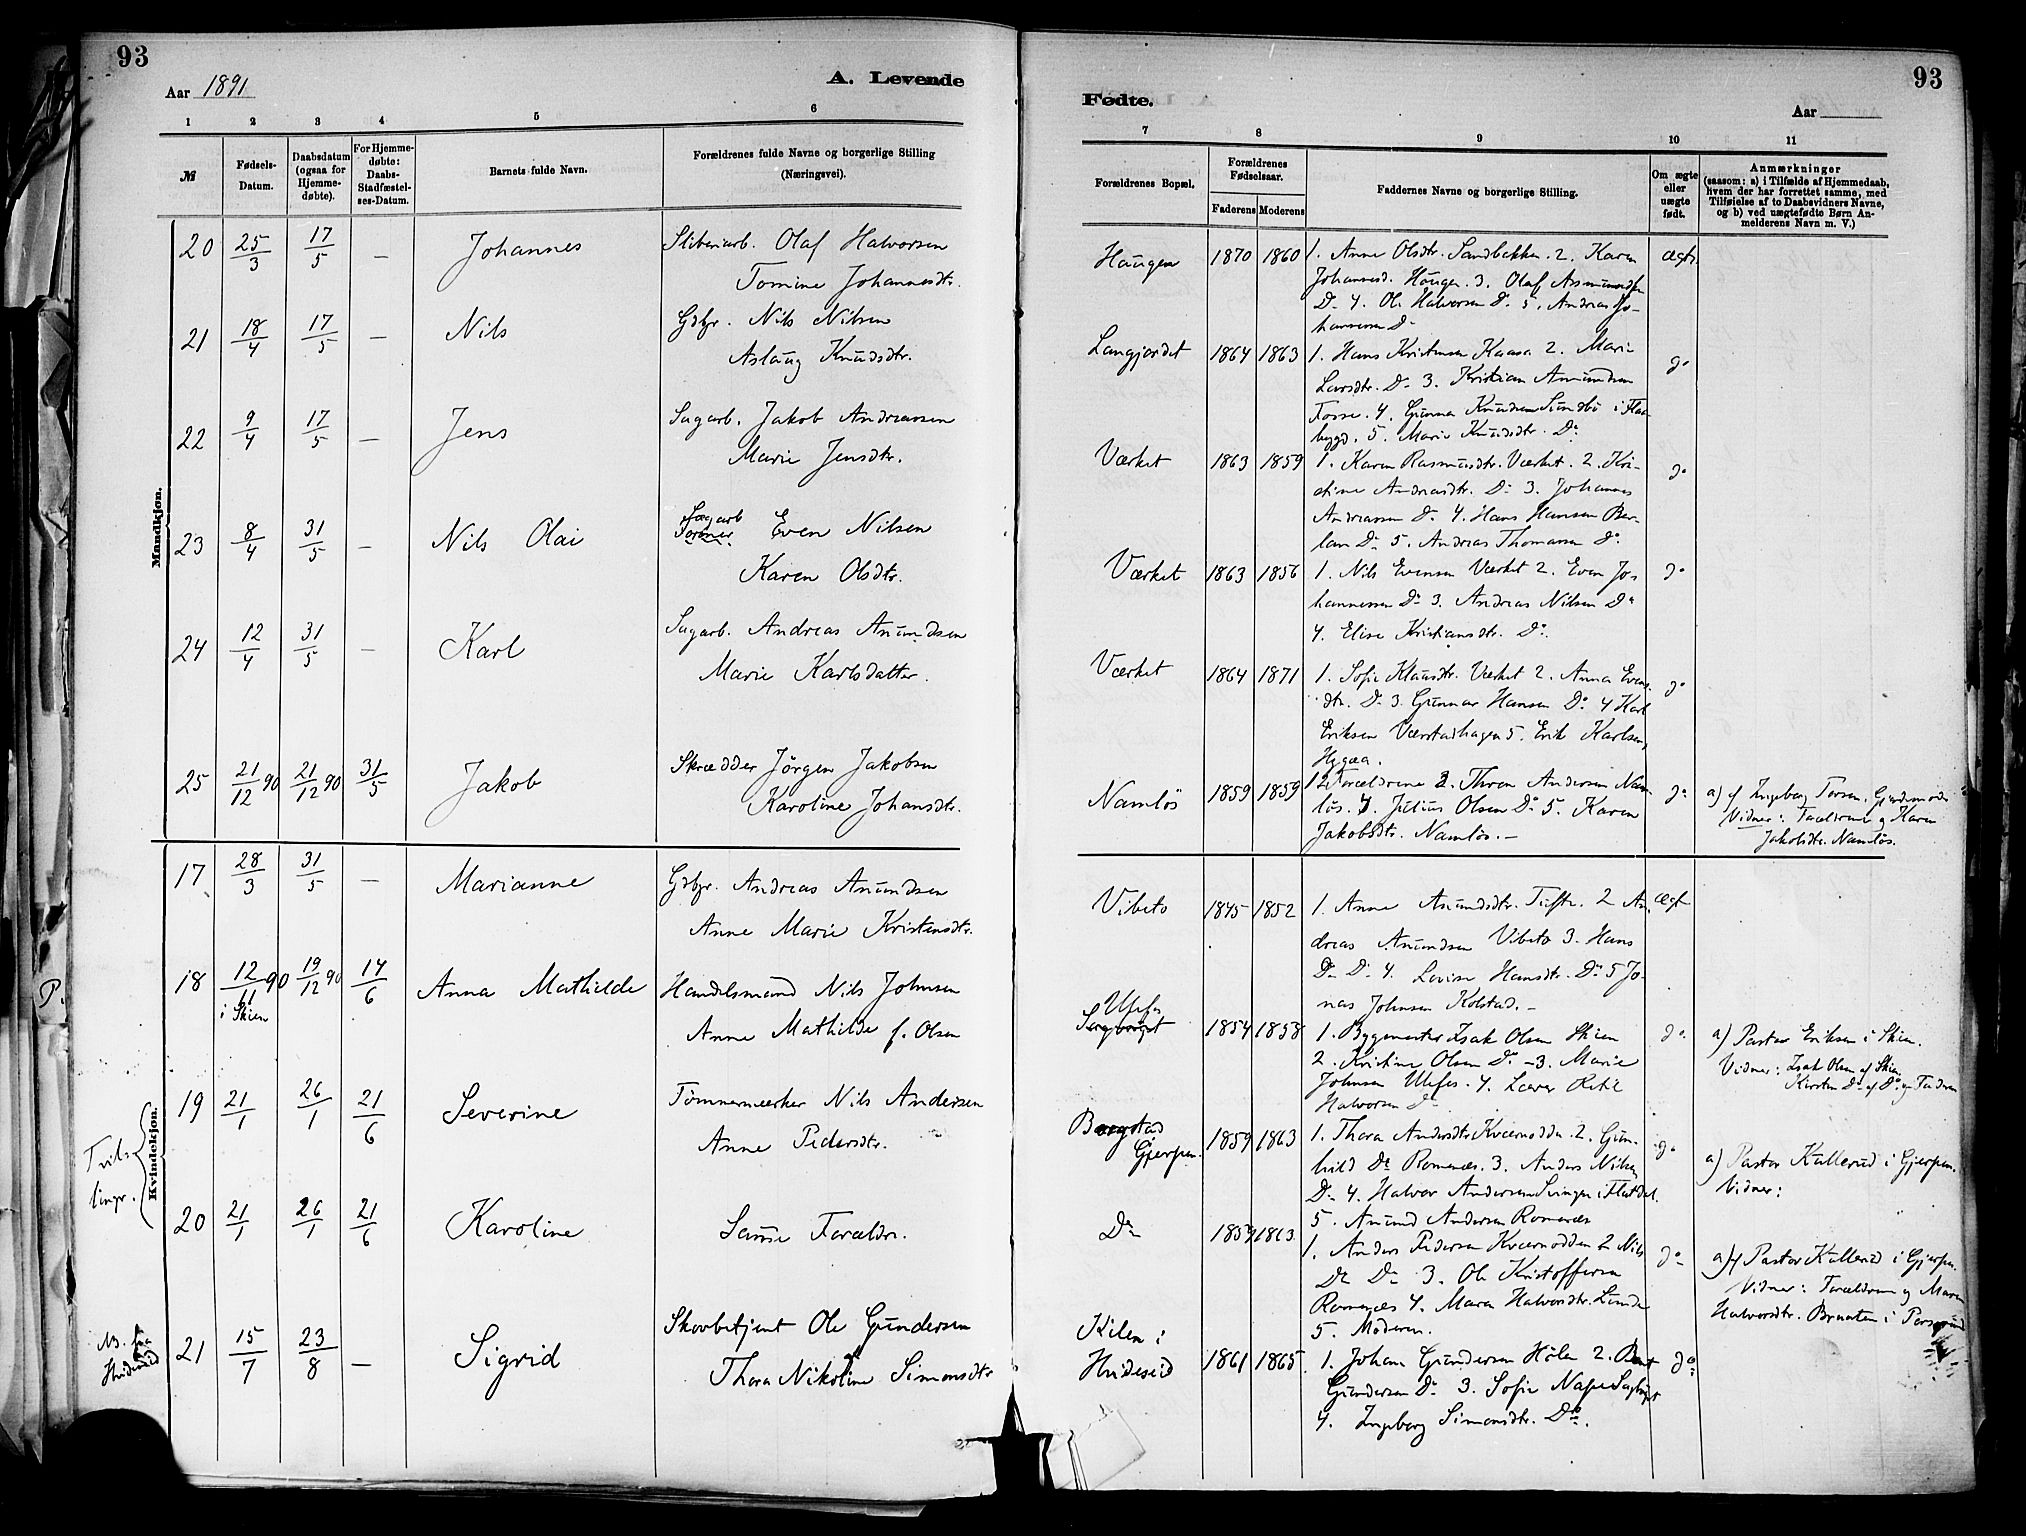 93
Aar 1891
A. Levende
1 2 3 4 5 6
№
Fødsels-
Datum.
Daabsdatum
(ogsaa for
Hjemme-
døbte).
For Hjemme-
døbte:
Daabs-
Stadfæstel-
ses-Datum.
Barnets fulde Navn.
Forældrenes fulde Navne og borgerlige Stilling
(Næringsvei).
Mandkjøn.
20 25/3 17/5 — Johannes Sliberiarb. Olaf Halvorsen
Tomine Johannesdtr.
21 18/4 17/5 — Nils Gdbr. Nils Nilsen
Aslaug Knudsdtr.
22 9/4 17/5 — Jens Sagarb. Jakob Andreasen
Marie Jensdtr.
Sagarb
23 8/4 31/5 — Nils Olai Former Even Nilsen
Karen Olsdtr.
24 12/4 31/5 — Karl Sagarb. Andreas Anundsen
Marie Karlsdatter.
25 21/12 90 21/12 90 31/5 Jakob Skrædder Jörgen Jakobsen
Karoline Johansdtr.
Kvindekjøn.
17 28/3 31/5 — Marianne Gdbr. Andreas Anundsen
Anne Marie Kristensdtr.
18 12/11 90 19/12 90 14/6 Anna Mathilde Handelsmand Nils Johnsen
i Skien
Anne Mathilde f. Olsen
Tvil-
linger.
19 21/1 26/1 21/6 Severine Tömmermærker Nils Andersen
Anne Pedersdtr.
20 21/1 26/1 21/6 Karoline Samme Forældr.
NB. fra
Hvideseid
21 15/7 23/8 — Sigrid Skovbetjent Ole Gundersen
Thora Nikoline Simonsdtr
93
Fødte.
Aar
7 8 9 10 11
Forældrenes Bopæl.
Forældrenes
Fødselsaar.
Faderens Moderens
Faddernes Navne og borgerlige Stilling.
Om ægte
eller
uægte
født.
Anmærkninger
(saasom: a) i Tilfælde af Hjemmedaab,
hvem der har forrettet samme, med
Tilføielse af to Daabsvidners Navne,
og b) ved uægtefødte Børn An-
melderens Navn m. V.)
Haugen 1870 1860 1. Anne Olsdtr. Sandbakken. 2. Karen ægte
Johannesd. Haugen. 3. Olaf Assmundsen
Do 4. Ole Halvorsen Do 5. Andreas Jo-
hannesen Do
Langjordet 1864 1863 1. Hans Kristensen Kaasa 2. Marie do
Larsdtr. Do 3. Kristian Anundsen
Fosse. 4. Gunnar Knudsen Sundbö i Flaa-
bygd. 5. Marie Knudsdtr. Do
Værket 1863 1859 1. Karen Rasmusdtr. Værket. 2. Kri- do
stine Andreasdtr. Do 3. Johannes
Andreassen Do 4. Hans Hansen Ber-
lan Do 5. Andreas Thomasen Do
Værket 1863 1856 1. Nils Evensen Værket 2. Even Jo- do
hannessen Do 3. Andreas Nilsen Do
4. Elise Kristiansdtr. Do
Værket 1864 1871 1. Sofie Klausdtr. Værket 2. Anna Evens- do
dtr. Do 3. Gunnar Hansen Do 4 Karl
Eriksen Værstadhagen 5. Erik Karlsen,
Hygæa.
Namlös 1859 1859 1 2 Forældrene 3. Thron Andersen Nam- do a) af Ingeborg Torsen. Gjordemoder
lös. 4. Julius Olsen Do 5. Karen Vidner: Forældrene og Karen
Jakobsdtr. Namlös. — Jakobsdtr. Namlös.
Vibeto 1845 1852 1. Anne Anundsdtr. Tufte. 2 An- Ægte
dreas Anundsen Vibeto 3. Hans
Do Do 4. Lovise Hansdtr. Do 5 Jo-
nas Johnsen Kolstad. —
Ulefos
1854 1858 1. Bygmester Isak Olsen Skien do a) Pastor Eriksen i Skien.
2. Kristine Olsen Do — 3. Marie Vidner: Isak Olsen af Skien
Johnsen Ulefos. 4. Lærer Ketil Kirsten Do af Do og Faderen
Halvorsen Do
Gjerpen. 1859 1863 1. Thora Andersdtr Kværnodden. 2. Gun- do a) Pastor Kallerud i Gjerpen.
hild Do Romenæs. 3. Anders Nilsen Vidner:
Do 4. Halvor Andersen Svingen i Flatdal.
5. Anund Andersen Romenæs
Do 1859 1863 1. Anders Pedersen Kværnodden 2 Nils do a) af Pastor Kallerud i Gjerpen.
Do Do 3. Ole Kristoffersen Vidner: Forældrene og Maren
Romenæs 4. Maren Halvorsdtr. Lunde Halvorsdtr. Braaten i Porsgrund
5. Moderen.
Kilen i
Hvideseid 1861 1865 1. Johan Gundersen Hölen 2. Bent do
Gundersen Do 3. Sofie
4. Ingeborg Simonsdtr. Do.